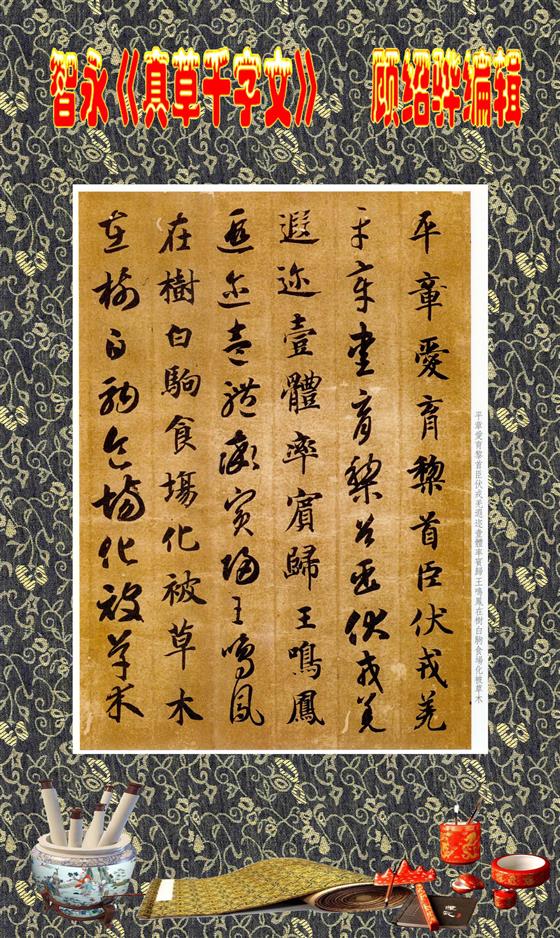 智永《真草千字文》　顾绍骅编辑
平章愛育黎首臣伏戎羌
平章愛育黎首臣伏戎羌
遐迩壹體率賓歸王鳴鳳
遐迩壹體率賓歸王鳴鳳
在樹白駒食場化被草木
在樹白駒食場化被草木
平章愛育黎首臣伏戎羌遐迩壹體率賓歸王鳴鳳在樹白駒食場化被草木